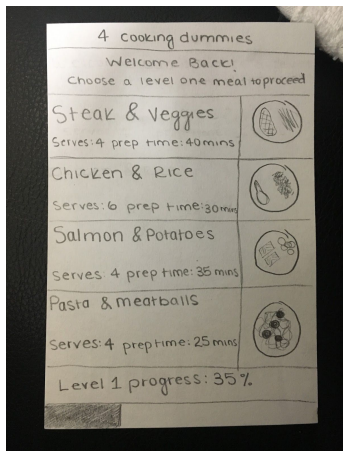 4 cooking dummies
Welcome Back!
Choose a level one meal to proceed
Steak & Veggies
Serves: 4 prep time: 40mins
Chicken & Rice
Serves: 6 prep time: 30mins
Salmon & Potatoes
Serves: 4 prep time: 35 mins
Pasta & meatballs
Serves: 4 prep time: 25 mins
Level 1 progress: 35%